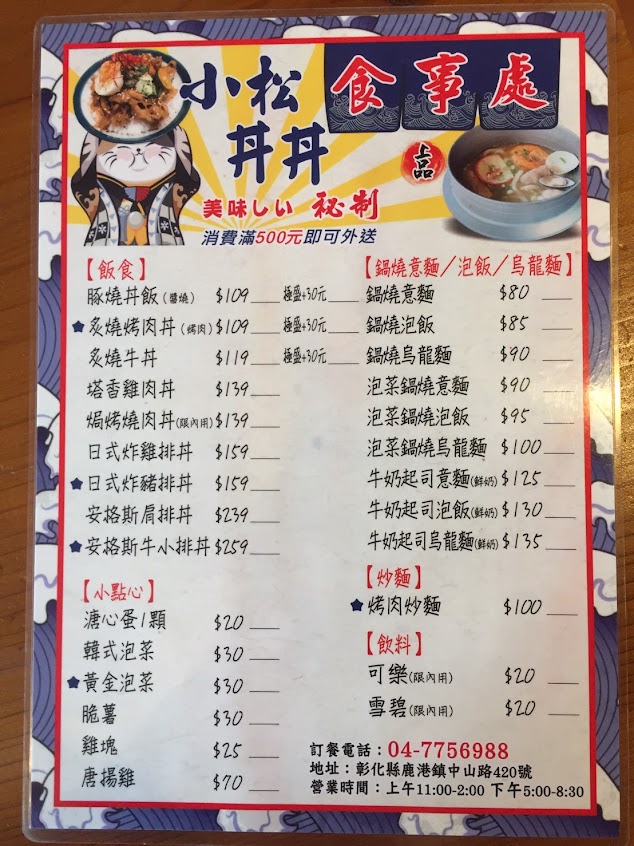 小松 食事處
丼丼
上品
美味しい 秘制
消費滿500元即可外送
【飯食】
豚燒丼飯(醬燒) $109 極盛+30元
炙燒烤肉丼(烤肉) $109 極盛+30元
炙燒牛丼 $119 極盛+30元
塔香雞肉丼 $139
焗烤燒肉丼(限內用) $139
日式炸雞排丼 $159
日式炸豬排丼 $159
安格斯肩排丼 $239
安格斯牛小排丼 $259
【小點心】
溏心蛋1顆 $20
韓式泡菜 $30
黃金泡菜 $30
脆薯 $30
雞塊 $25
唐揚雞 $70
【鍋燒意麵/泡飯/烏龍麵】
鍋燒意麵 $80
鍋燒泡飯 $85
鍋燒烏龍麵 $90
泡菜鍋燒意麵 $90
泡菜鍋燒泡飯 $95
泡菜鍋燒烏龍麵 $100
牛奶起司意麵(鮮奶) $125
牛奶起司泡飯(鮮奶) $130
牛奶起司烏龍麵(鮮奶) $135
【炒麵】
烤肉炒麵 $100
【飲料】
可樂(限內用) $20
雪碧(限內用) $20
訂餐電話：04-7756988
地址：彰化縣鹿港鎮中山路420號
營業時間：上午11:00-2:00 下午5:00-8:30